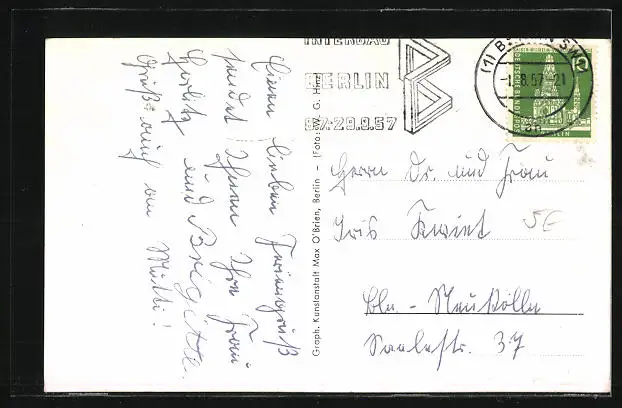 Einen lieben Feriengruß
sendet Ihnen Ihre Frau
und Brigitte.
Gruß auch an Mutti!
Graph. Kunstanstalt Max O'Brien, Berlin – (Foto: W. G. Hinz)
INTERBAU
BERLIN
6.7.-29.9.57
(1) BERLIN SW
-1.8.57-21
DEUTSCHE BUNDESPOST
BERLIN
10
Herrn Dr. und Frau
Bln.- Neukölln
Saalestr. 37
5E